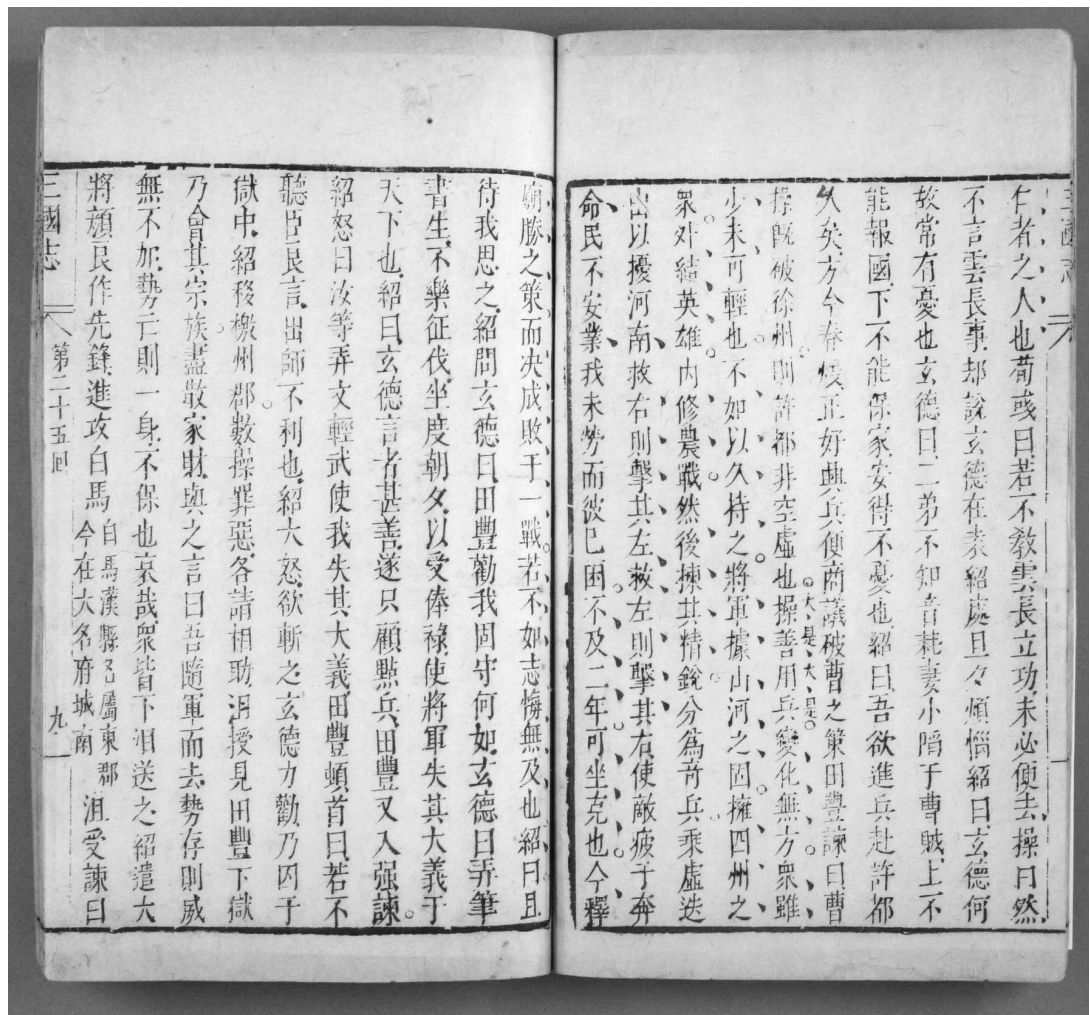 三國志
仁者之人也荀彧曰若不敎雲長立功未必便去操曰然
不言雲長事却說玄德在袁紹處旦夕煩惱紹曰玄德何
故常有憂也玄德曰二弟不知音耗妻小陷于曹賊上不
能報國下不能保家安得不憂也紹曰吾欲進兵赴許都
久矣方今春煖正好興兵便商議破曹之策田豐諫曰曹
大是大是
操旣破徐州則許都非空虛也操善用兵變化無方衆雖
少未可輕也不如以久持之將軍據山河之固擁四州之
衆外結英雄內修農戰然後揀其精銳分爲竒兵乘虛迭
出以擾河南救右則擊其左救左則擊其右使敵疲于奔
命民不安業我未勞而彼已困不及二年可坐克也今釋
廟勝之策而决成敗于一戰若不如志悔無及也紹曰且
待我思之紹問玄德曰田豐勸我固守何如玄德曰弄筆
書生不樂征伐坐度朝夕以受俸祿使將軍失其大義于
天下也紹曰玄德言者甚善遂只顧點兵田豐又入强諫
紹怒曰汝等弄文輕武使我失其大義田豐頓首曰若不
聽臣良言出師不利也紹大怒欲斬之玄德力勸乃囚于
獄中紹移檄州郡數操罪惡各請相助沮授見田豐下獄
乃會其宗族盡散家財與之言曰吾隨軍而去勢存則威
無不加勢亡則一身不保也哀哉衆皆下泪送之紹遣大
將顔良作先鋒進攻白馬白馬漢縣名屬東郡今在大名府城南沮受諫曰
三國志 第二十五回 九